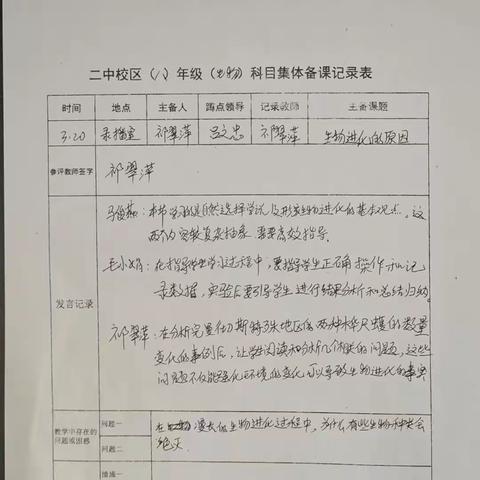 二中校区（八）年级（生物）科目集体备课记录表
时间 地点 主备人 蹲点领导 记录教师 主备课题
3.20 录播室 祁翠萍 吕文忠 祁翠萍 生物进化的原因
参评教师签字 祁翠萍
马俊燕：本节学习的是自然选择学说及形成生物进化的基本观点。这
两个内容较复杂抽象，需要高效指导。
毛小娟：在指导学生学习过程中，要指导学生正确操作和记
录数据，实验后要引导学生进行结果分析和总结归纳。
发言记录
祁翠萍：在分析完曼彻斯特地区的两种桦尺蠖的数量
变化的事例后，让学生阅读和分析几个相关的问题，这些
问题不仅能强化环境的变化可以导致生物进化的事实
教学中存在的问题或困惑
问题一 在漫长的生物进化过程中，为什么有些生物种类会
绝灭
问题二
措施一